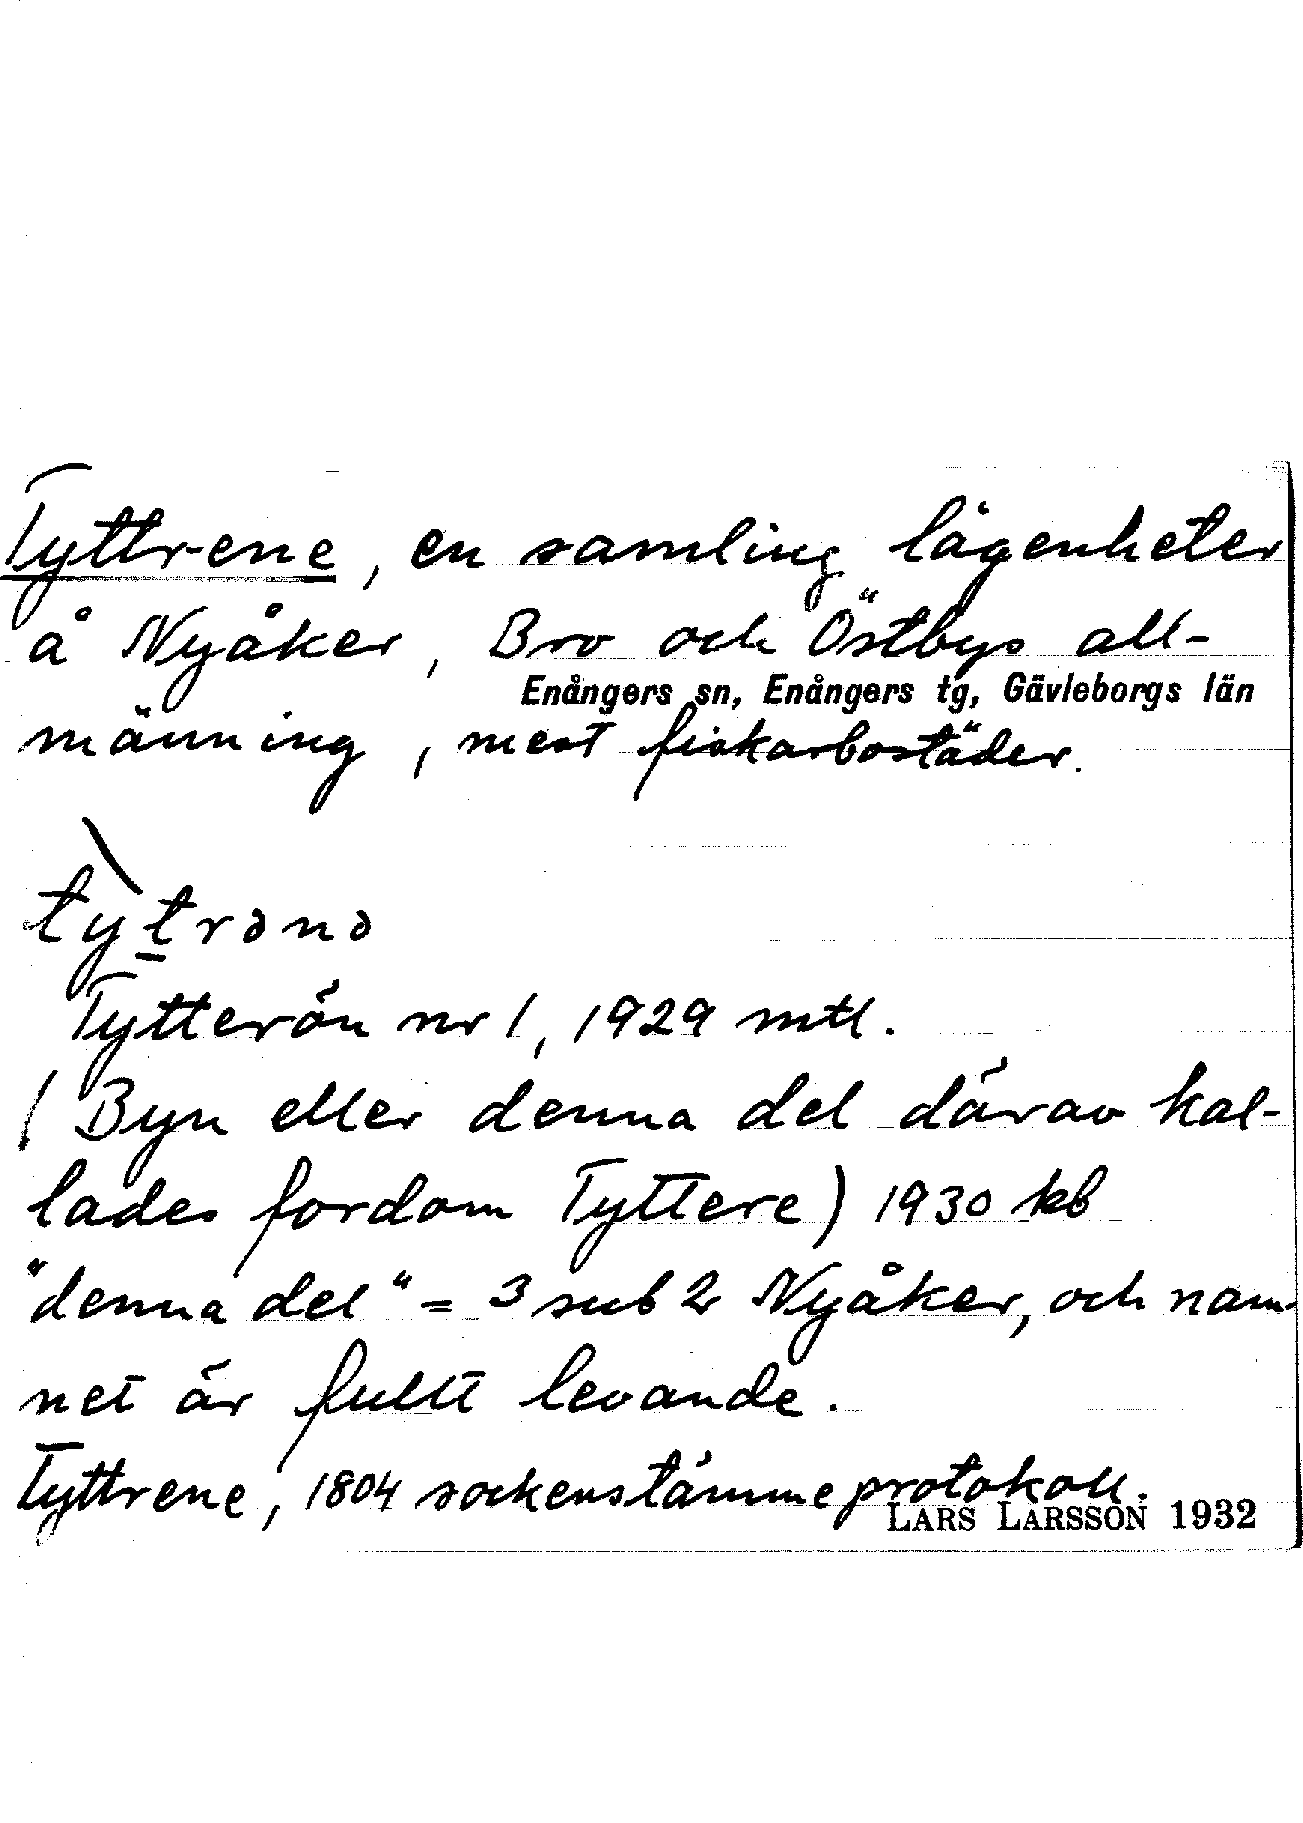 Tyttrene, en samling lägenheter
å Nyåker, Bro och Östbys all-
Enångers sn, Enångers tg, Gävleborgs län
männing, mest fiskarbostäder.
tỳtrənə
Tytterön nr 1, 1929 mtl.
(Byn eller denna del därav kal-
lades fordom Tyttere) 1930 kb
"denna del" = 3 sub 2 Nyåker, och nam-
net är fullt levande.
Tyttrene, 1804 sockenstämmeprotokoll.
LARS LARSSON 1932